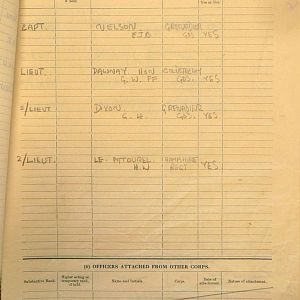 CAPT. NELSON GRENADIER
E.J.B GDS YES
LIEUT. DAWNAY HON COLDSTREAM
G. W. FF GDS. YES
2/LIEUT DIXON. GRENADIER
G. H. GDS. YES
2/LIEUT. LE. MITOUREL. HAMPSHIRE YES.
H.W REGT
(6) OFFICERS ATTACHED FROM OTHER CORPS.
Substantive Rank. Higher acting or temporary rank, if held. Name and Initials. Corps. Date of attachment. Nature of attachment.